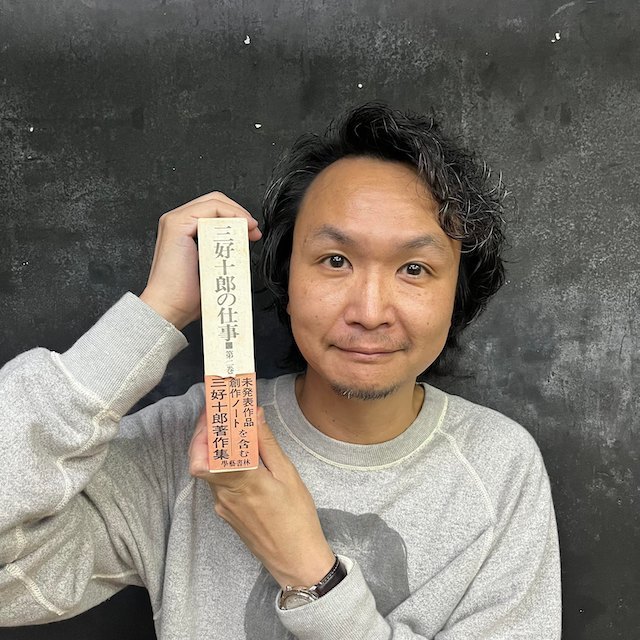 三好十郎の仕事■第二巻
未発表作品
創作ノート
を含む
三好十郎著作集
學藝書林